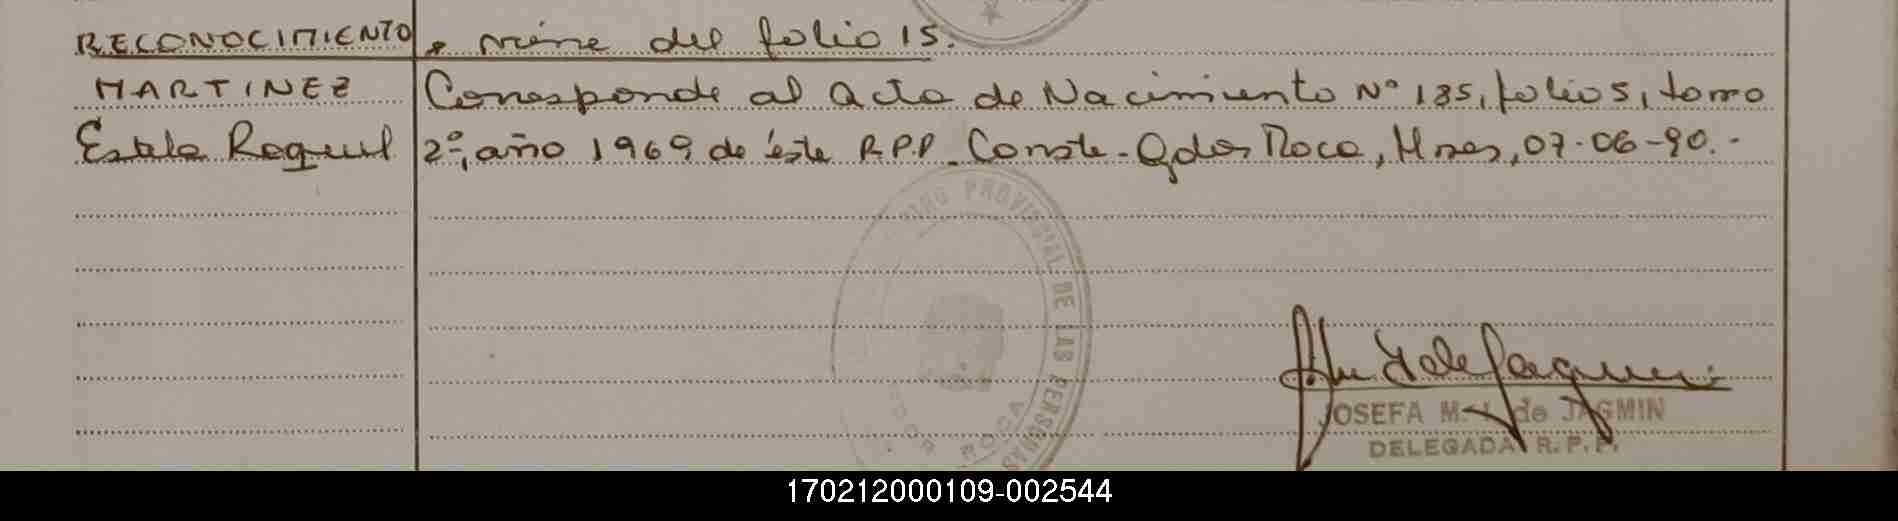 RECONOCIMIENTO * viene del folio 15.
MARTINEZ Corresponde al Acta de Nacimiento Nº 135, folio 5, tomo
Estela Raquel 2º, año 1969 de éste R.P.P. Conste - Gdor Roca, Mnes, 07-06-90.-
PROVINCIAL DE LAS PERSONAS
GDOR ROCA
JOSEFA M. de JAGMIN
DELEGADA R. P. P.
170212000109-002544